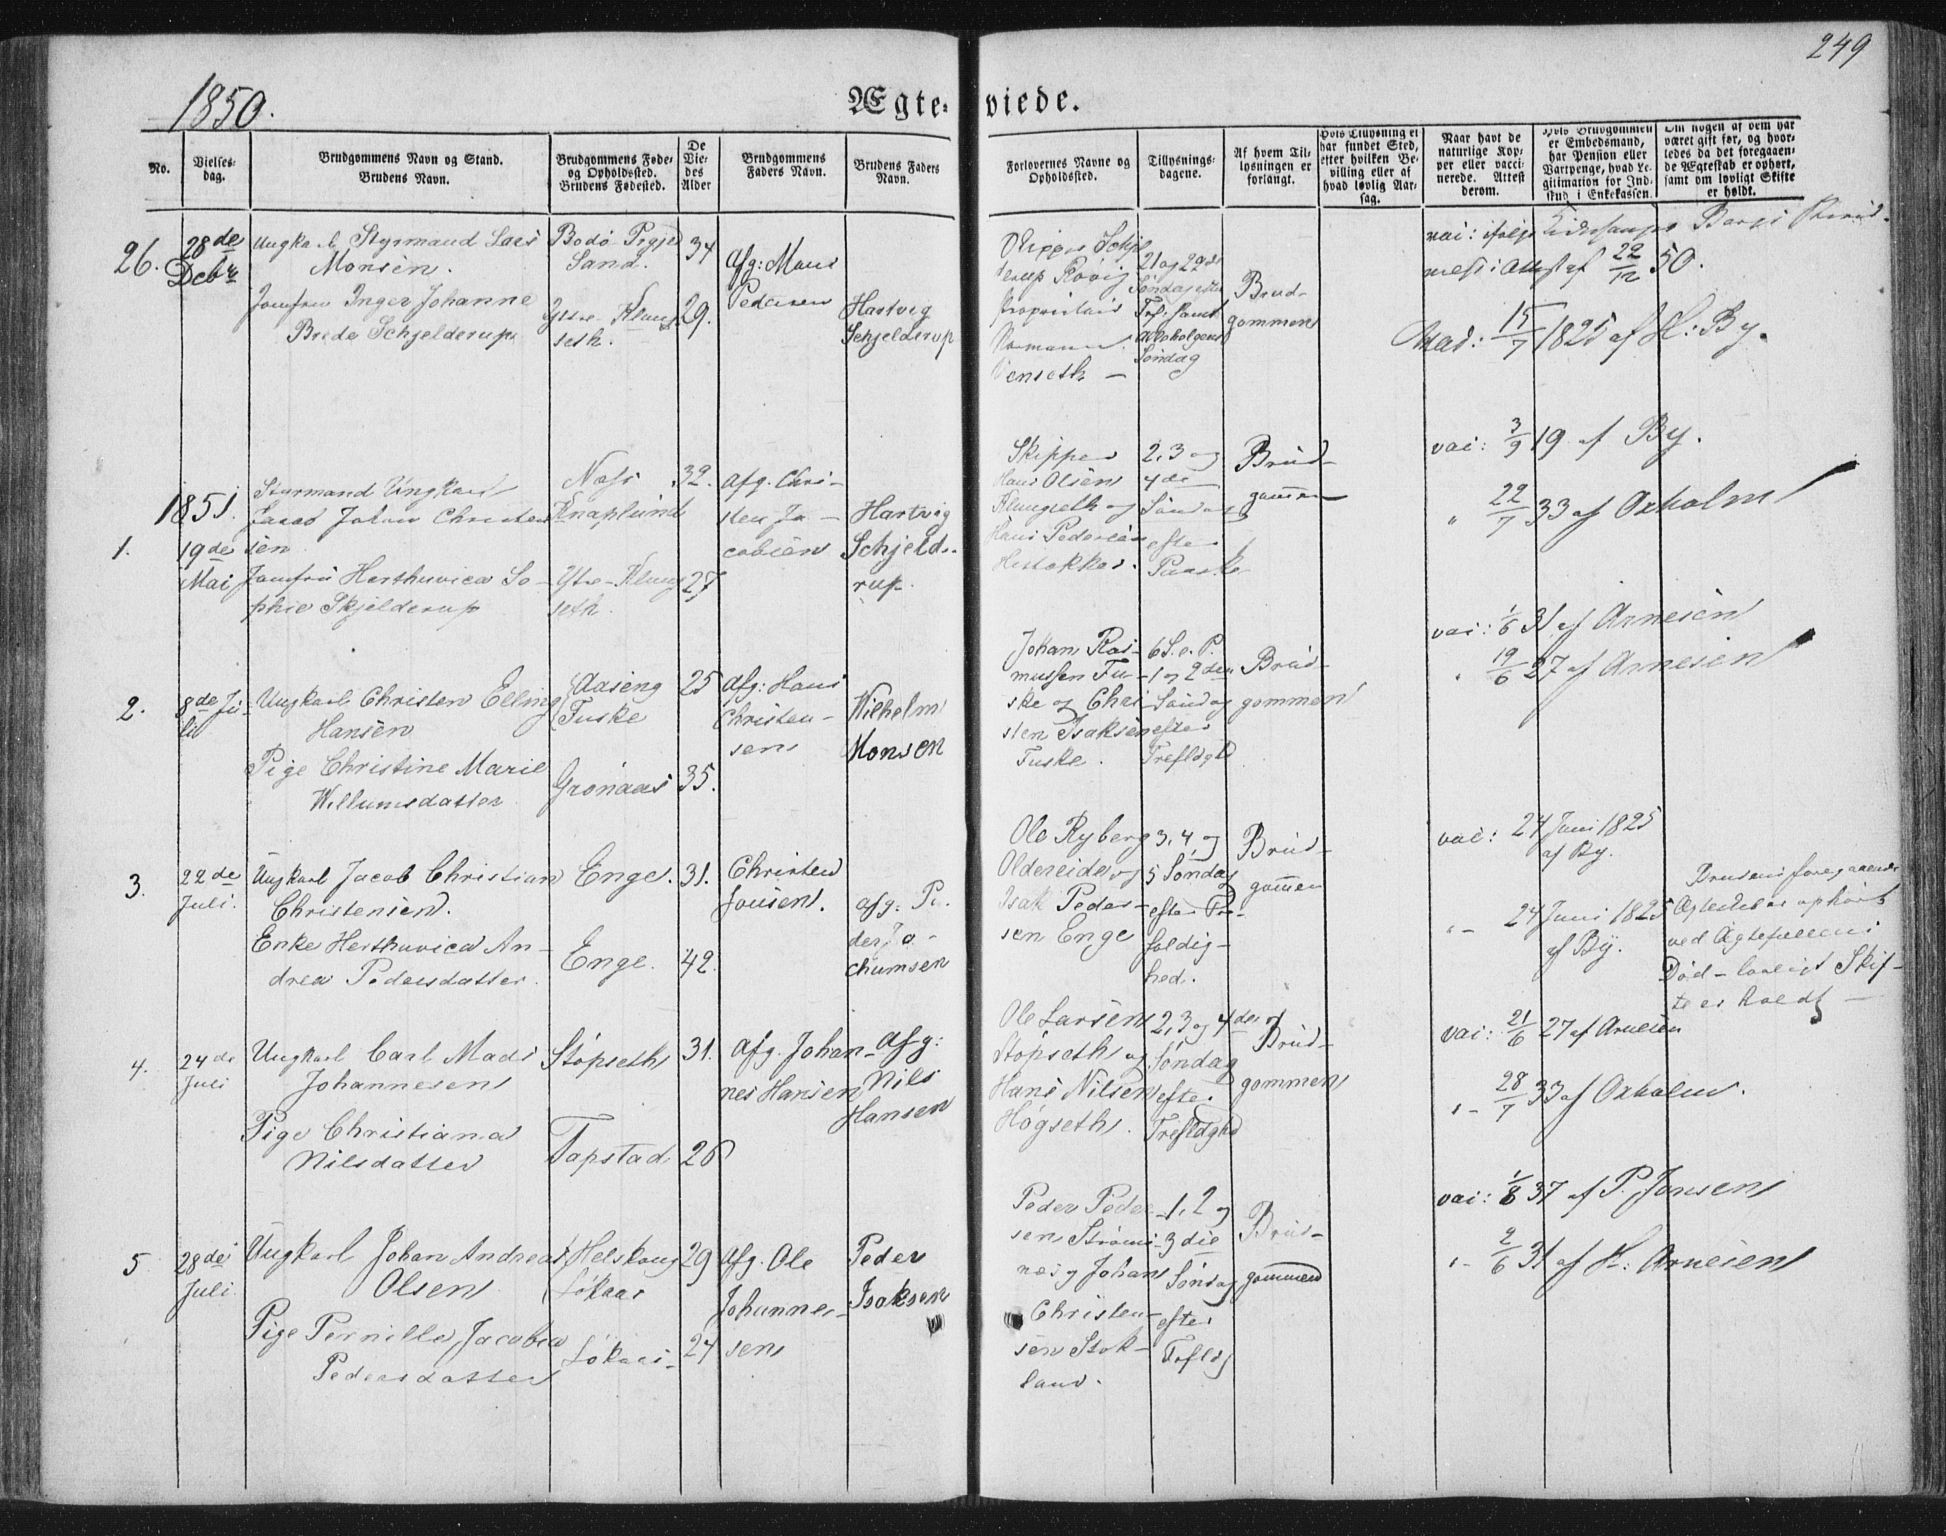 249
1850.
Ægte-viede.
No.
Vielses-
dag.
Brudgommens Navn og Stand.
Brudens Navn.
Brudgommens Føde-
og Opholdssted.
Brudens Fødested.
De
Vie-
des
Alder
Brudgommens
Faders Navn.
Brudens Faders
Navn.
Forlovernes Navne og
Opholdssted.
Tillysnings-
dagene.
Af hvem Til-
lysningen er
forlangt.
Hvis Tillysning ei
har fundet Sted,
efter hvilken Be-
villing eller af
hvad lovlig Aar-
sag.
Naar havt de
naturlige Kop-
per eller vacci-
nerede. Attest
derom.
Hvis Brudgommen
er Embedsmand,
har Pension eller
Vartpenge, hvad Le-
gitimation for Ind-
skud i Enkekassen.
Om nogen af dem har
været gift før, og hvor-
ledes da det foregaaen-
de Ægteskab er ophørt,
samt om lovligt Skifte
er holdt.
26.
28de
Decbr
Ungkarl Styrmand Lars
Monsen.
Jomfru Inger Johanne
Brede Schjelderup
Bodø Prgjd
Sand.
Ytre-Klung-
seth.
34
29.
Afg: Mons
Pedersen
Hartvig
Schjelderup
Skipper Schjel
derup Røvig
Proprietair
Normann
21 og 22de
Søndag efter
Tref: samt
Søndag
Brud-
gommen
vac: ifølge
Attest af 22/12 50.
Vac: 15/7 1825 af H: By.
1851.
1.
19de
Mai
Styrmand Ungkarl
Jacob Johan Christen
sen
Jomfru Herthuvica So-
phie Skjelderup
Næss
Knaplund
Ytre-Klung
seth.
32.
27
Afg. Chri-
sten Ja-
cobsen
Hartvig
Schjelde-
rup.
Skipper
Hans Olsen
Klungseth og
Hans Pedersen
Hestakker.
2, 3 og
4de
Søndag
efter
Paaske
Brud-
gommen
vac: 3/9 19 af By.
" 22/7 33 af Oxholm
2.
8de Ju-
li
Ungkarl Christen Elling
Hansen
Pige Christine Marie
Willumsdatter
Aaseng
Fuske
Grønaas
25
35.
Afg: Hans
Christen-
sen
Wilhelm
Monsen
Johan Ras-
mussen Fu-
ske og Chri-
sten Isaksen
Fuske.
6 S. e. P.
1 og 2den
Søndag
efter
Trefldghd
Brud-
gommen
vac: 1/6 31 af Arnesen
" 19/6 27 af Arnesen
3.
22de
Juli.
Ungkarl Jacob Christian
Christensen.
Enke Herthuvica An-
drea Pedersdatter.
Enge.
Enge.
31.
42.
Christen
Jonsen.
Afg: Pe-
der Jo-
chumsen
Ole Ryberg
Oldereide og
Isak Peder-
sen Enge
3, 4, og
5 Søndag
efter Tre-
foldig-
hed.
Brud-
gommen
vac: 24 Juni 1825
af By.
"- 24 Juni 1825
af By.
Brudens foregaaende
Ægteskab er ophørt
ved Ægtefællens
Død - lovligt Skif-
te er holdt -
4.
24de
Juli
Ungkarl Carl Mads
Johannesen
Pige Christiana
Nilsdatter
Støpseth
Tapstad
31.
26
Afg. Johan-
nes Hansen
Afg:
Nils
Hansen
Ole Larsen
Støpseth og
Hans Nilsen
Høgseth.
2, 3 og 4de
Søndag
efter
Trefldghd
Brud-
gommen
vac: 21/6 27 af Arnesen
"- 28/7 33 af Oxholm.
5
28de
Juli.
Ungkarl Johan Andreas
Olsen
Pige Pernille Jacobea
Pedersdatter
Helskaug
Løkaas
Løkaas-
29
24
Afg. Ole
Johannes-
sen
Peder
Isaksen
Peder Peder-
sen Strøms-
næs og Johan
Christen-
sen Stok-
land.
1, 2 og
3die
Søndag
efter
Trfldg
Brud-
gommen
vac: 1/8 37 af P. Jonsen
"- 2/6 31 af H: Arnesen